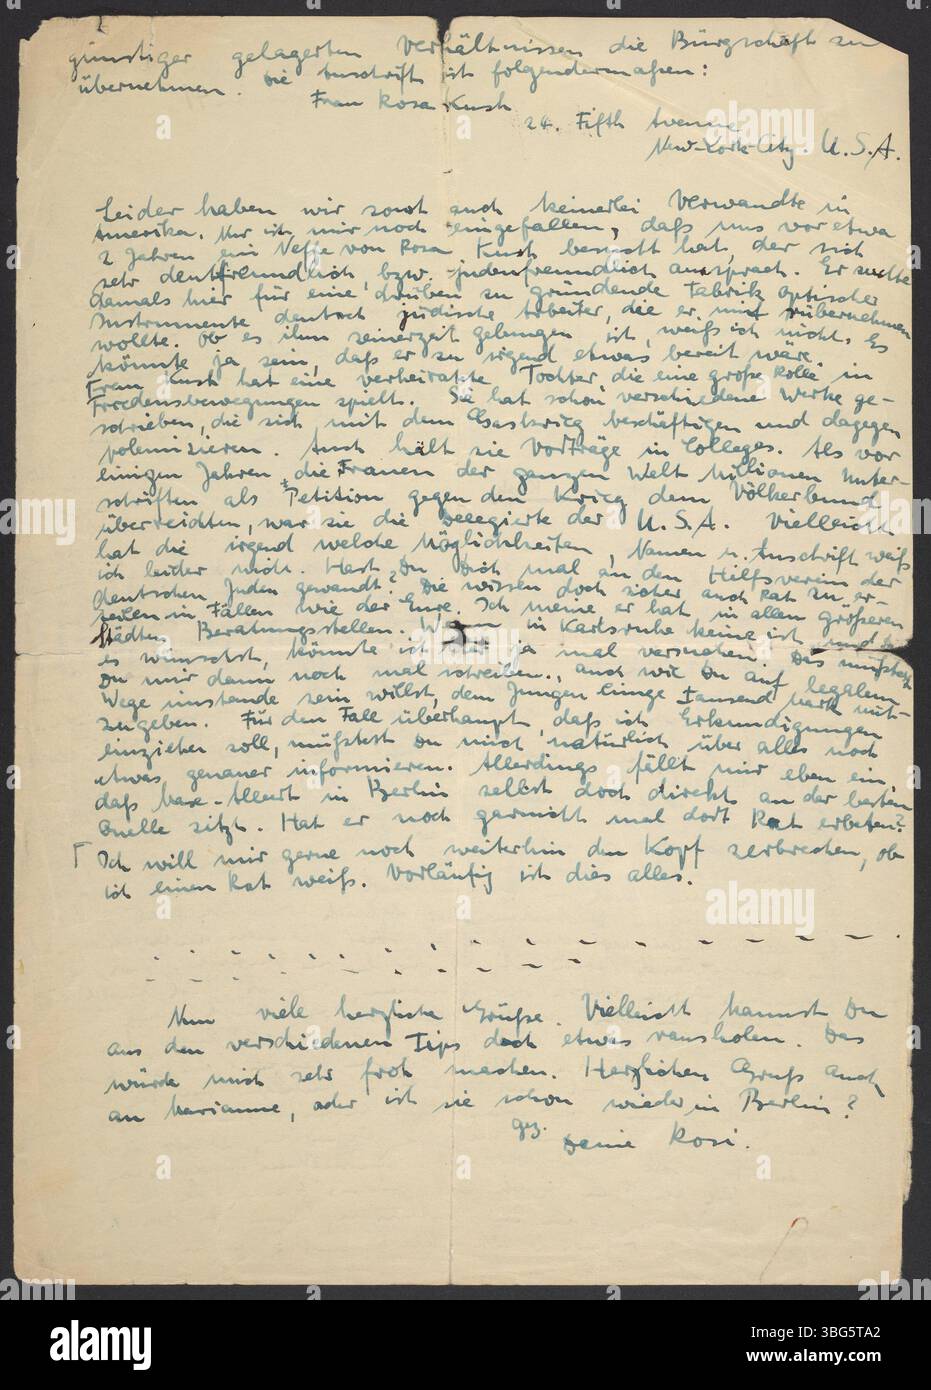 günstiger gelagerten Verhältnissen die Bürgschaft zu
übernehmen. Die Anschrift ist folgendermaßen:
Frau Rosa Kush
24. Fifth Avenue
New-York-City. U.S.A.
Leider haben wir sonst auch keinerlei Verwandte in
Amerika. Nur ist mir noch eingefallen, daß uns vor etwa
2 Jahren ein Neffe von Rosa Kush besucht hat, der sich
sehr deutschfreundlich, bzw. judenfreundlich aussprach. Er suchte
damals hier für eine drüben zu gründende Fabrik optischer
Instrumente deutsch jüdische Arbeiter, die er mit rübernehmen
wollte. Ob es ihm seinerzeit gelungen ist, weiß ich nicht. Es
könnte ja sein, daß er zu irgend etwas bereit wäre.
Frau Kush hat eine verheiratete Tochter, die eine große Rolle in
Friedensbewegungen spielt. Sie hat schon verschiedene Werke ge-
schrieben, die sich mit dem Gaskrieg beschäftigen und dagegen
polemisieren. Auch hält sie Vorträge in Colleges. Als vor
einigen Jahren die Frauen der ganzen Welt Millionen Unter-
schriften als Petition gegen den Krieg dem Völkerbund
überreichten, war sie die Delegierte der U.S.A. Vielleicht
hat die irgend welche Möglichkeiten, Namen u. Anschrift weiß
ich leider nicht. Hast Du Dich mal an den Hilfsverein der
deutschen Juden gewandt? Die wissen doch sicher auch Rat zu er-
teilen in Fällen wie der Eure. Ich meine er hat in allen größeren
Städten Beratungsstellen. Wenn in Karlsruhe keine ist und Du
es wünschst, könnte ich hier ja mal versuchen. Das müßtest
Du mir dann noch mal schreiben., auch wie Du auf legalem
Wege imstande sein willst, dem Jungen einige Tausend Mark mit-
zugeben. Für den Fall überhaupt, daß ich Erkundigungen
einziehen soll, müßtest Du mich natürlich über alles noch
etwas genauer informieren. Allerdings fällt mir eben ein,
daß Max-Albert in Berlin selbst doch direkt an der besten
Quelle sitzt. Hat er noch garnicht mal dort Rat erbeten?
Ich will mir gerne noch weiterhin den Kopf zerbrechen, ob
ich einen Rat weiß. Vorläufig ist dies alles.
Nun viele herzliche Grüße. Vielleicht kannst Du
aus den verschiedenen Tips doch etwas rausholen. Das
würde mich sehr froh machen. Herzlichen Gruß auch
an Marianne, oder ist sie schon wieder in Berlin?
gez.
Deine Rosi.
alamy
Image ID: 3BG5TA2
www.alamy.com